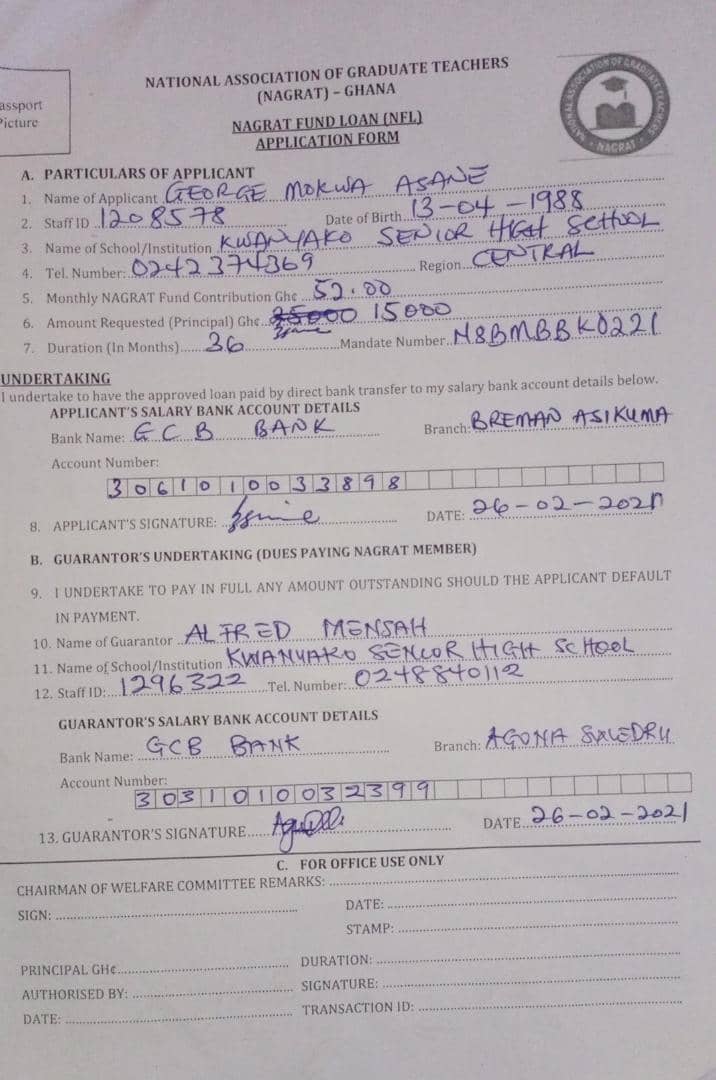 NATIONAL ASSOCIATION OF GRADUATE TEACHERS
(NAGRAT) – GHANA
assport
Picture
NAGRAT FUND LOAN (NFL)
APPLICATION FORM
NATIONAL ASSOCIATION OF GRADUATE TEACHERS
NAGRAT
A. PARTICULARS OF APPLICANT
1. Name of Applicant GEORGE MOKWA ASANE
2. Staff ID 1208578 Date of Birth 13-04-1988
3. Name of School/Institution KWANYAKO SENIOR HIGH SCHOOL
4. Tel. Number: 0242374369 Region CENTRAL
5. Monthly NAGRAT Fund Contribution Gh¢ 52.00
6. Amount Requested (Principal) Gh¢ 15000
7. Duration (In Months) 36 Mandate Number N8BMBBK0221
UNDERTAKING
I undertake to have the approved loan paid by direct bank transfer to my salary bank account details below.
APPLICANT'S SALARY BANK ACCOUNT DETAILS
Bank Name: GCB BANK Branch: BREMAN ASIKUMA
Account Number:
3061010033898
8. APPLICANT'S SIGNATURE: DATE: 26-02-2021
B. GUARANTOR'S UNDERTAKING (DUES PAYING NAGRAT MEMBER)
9. I UNDERTAKE TO PAY IN FULL ANY AMOUNT OUTSTANDING SHOULD THE APPLICANT DEFAULT
IN PAYMENT.
10. Name of Guarantor ALFRED MENSAH
11. Name of School/Institution KWANYAKO SENIOR HIGH SCHOOL
12. Staff ID: 1296322 Tel. Number: 0248840112
GUARANTOR'S SALARY BANK ACCOUNT DETAILS
Bank Name: GCB BANK Branch: AGONA SWEDRU
Account Number:
3031010032399
13. GUARANTOR'S SIGNATURE DATE 26-02-2021
C. FOR OFFICE USE ONLY
CHAIRMAN OF WELFARE COMMITTEE REMARKS:
SIGN: DATE:
STAMP:
PRINCIPAL GH¢ DURATION:
AUTHORISED BY: SIGNATURE:
DATE: TRANSACTION ID: